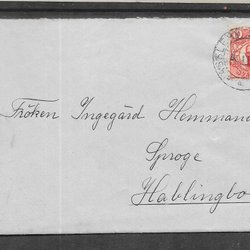 Fröken Ingegärd Hemmande
Sproge
Hablingbo